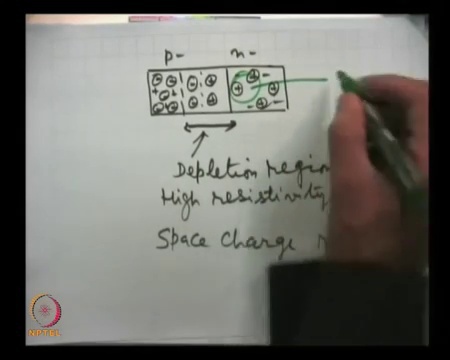 p- n-
Depletion region
High resistivity
Space Charge
NPTEL